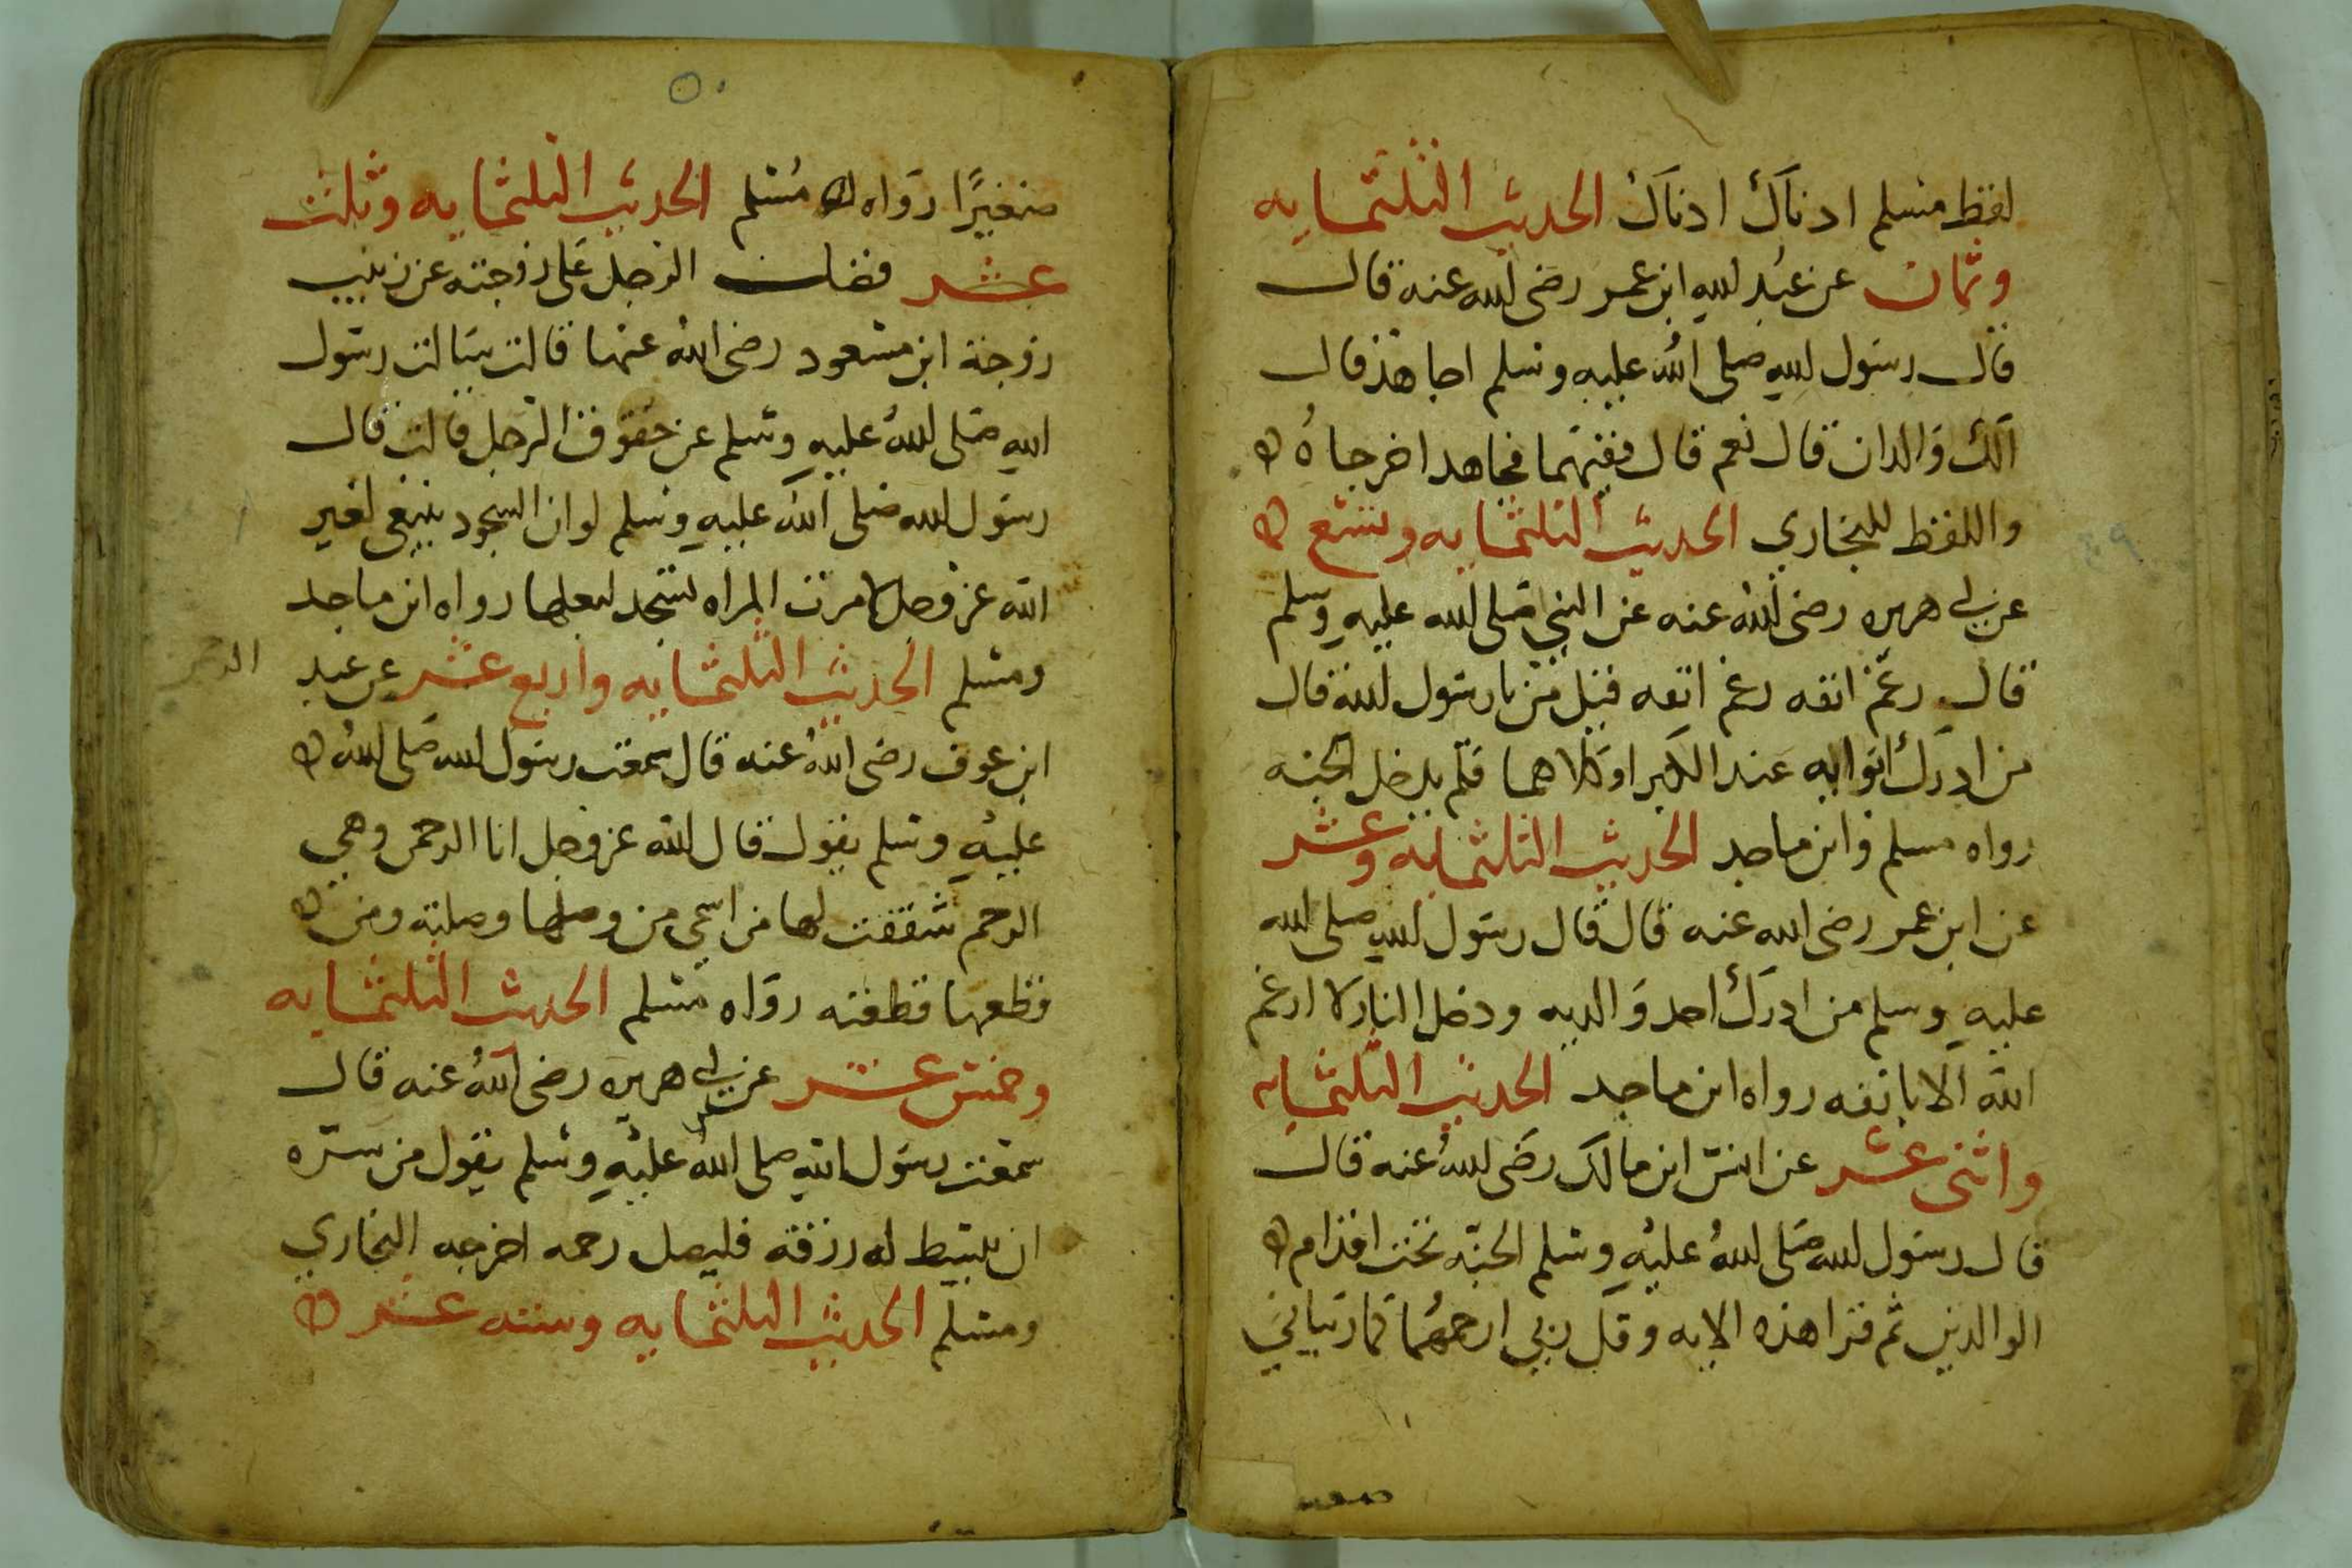 لفظ مسلم ادناك ادناك الحديث الثلثمايه
وثمان عن عبد الله ابن عمر رضى الله عنه قال
قال رسول الله صلى الله عليه وسلم اجاهد قال
الك والدان قال نعم قال ففيهما فجاهد اخرجاه ه
واللفظ للبخاري الحديث الثلثمايه وتسع ه
عن ابي هريره رضى الله عنه عن النبي صلى الله عليه وسلم
قال رغم انفه رغم انفه قيل من يا رسول الله قال
من ادرك ابوابه عند الكبر او كلاهما فلم يدخل الجنه
رواه مسلم وابن ماجد الحديث الثلثمايه وعشر
عن ابن عمر رضى الله عنه قال قال رسول الله صلى الله
عليه وسلم من ادرك احد والديه ودخل النار لا ارغم
الله الا بانفه رواه ابن ماجد الحديث الثلثمايه
واثنى عشر عن انس ابن مالك رضى الله عنه قال
قال رسول الله صلى الله عليه وسلم الجنه تحت اقدام ه
الوالدين ثم قرا هذه الايه وقل ربي ارحمهما كما ربياني
صغيرا
صغيرًا رواه مسلم الحديث الثلثمايه وثلث
عشر فضل الرجل على زوجته عن زينب
زوجة ابن مسعود رضى الله عنها قالت سالت رسول
الله صلى الله عليه وسلم عن حقوق الرجل قالت قال
رسول الله صلى الله عليه وسلم لو ان السجود ينبغي لغير
الله عز وجل لامرت المراه تسجد لبعلها رواه ابن ماجد
ومسلم الحديث الثلثمايه واربع عشر عن عبد الرحمن
ابن عوف رضى الله عنه قال سمعت رسول الله صلى الله ه
عليه وسلم يقول قال الله عز وجل انا الرحمن وهي
الرحم شققت لها من اسمي من وصلها وصلته ومن ه
قطعها قطعته رواه مسلم الحديث الثلثمايه
وخمس عشر عن ابي هريره رضى الله عنه قال
سمعت رسول الله صلى الله عليه وسلم يقول من سره
ان يبسط له رزقه فليصل رحمه اخرجه البخاري
ومسلم الحديث الثلثمايه وسته عشر ه